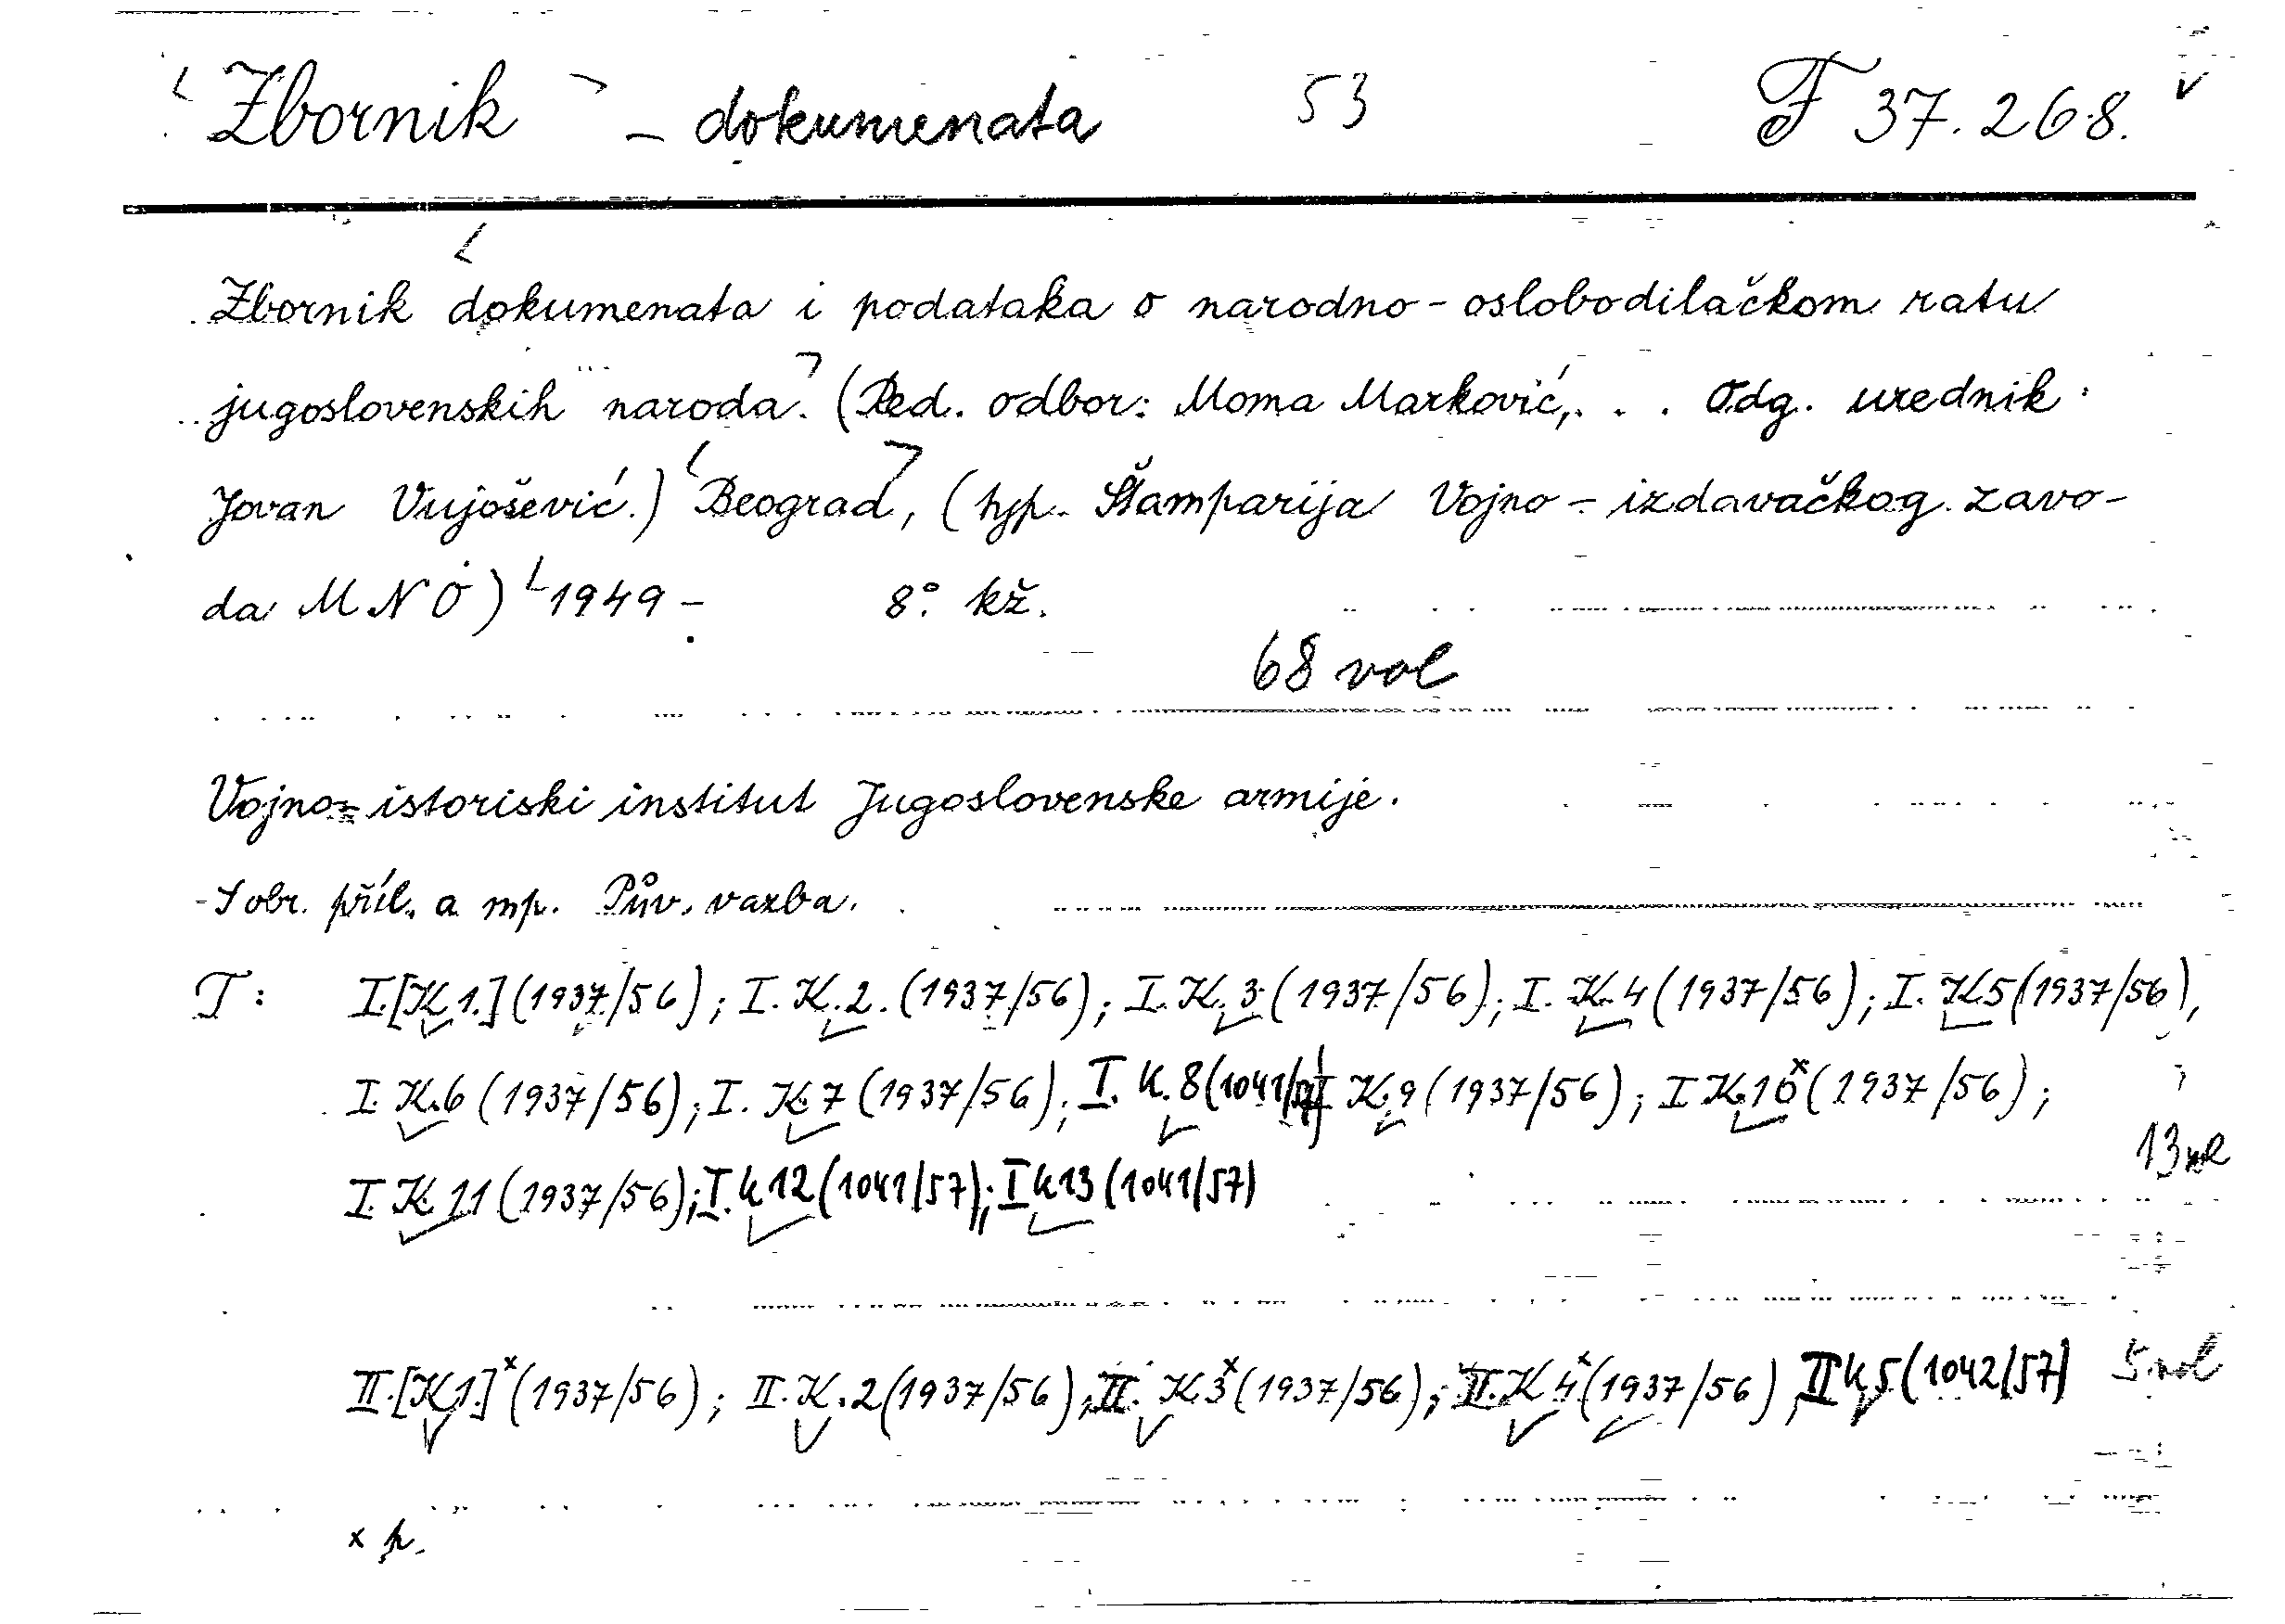 Zbornik - dokumenata 53 F 37.268.
Zbornik dokumenata i podataka o narodno-oslobodilačkom ratu
jugoslovenskih naroda. (Red. odbor: Moma Marković,... Odg. urednik:
Jovan Vujošević.) Beograd, (typ. Štamparija Vojno-izdavačkog zavo-
da MNO) 1949- 8° kž.
68 vol
Vojno-istoriski institut Jugoslovenske armije.
-S obr. příl. a mp. Pův. vazba.
T: I.[K.1.] (1937/56); I. K.2. (1937/56); I. K. 3 (1937/56); I. K. 4 (1937/56); I. K5 (1937/56),
I. K.6 (1937/56); I. K. 7 (1937/56); I. K. 8 (1041/57) I K. 9 (1937/56); I K. 10x (1937/56);
13 vol
I. K. 11 (1937/56); I. K 12 (1041/57); I K 13 (1041/57)
II.[K1.]x (1937/56); II. K. 2 (1937/56); II. K 3x (1937/56); II. K 4x (1937/56), II K 5 (1042/57) 5 vol
x p.